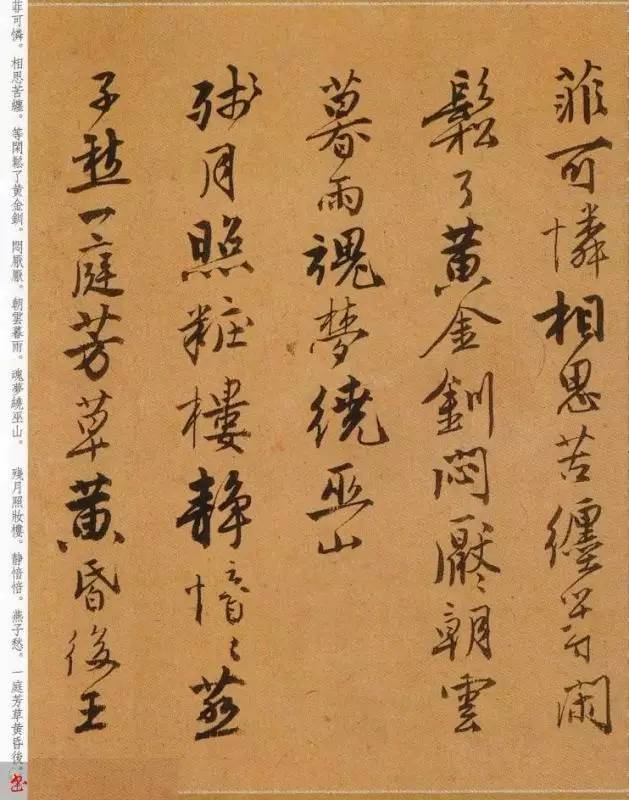 菲可憐相思苦纏等閑
鬆了黄金釧悶厭〻朝雲
暮雨魂夢繞巫山
殘月照粧樓静愔〻燕
子愁一庭芳草黄昏後王
菲可憐。相思苦纏。等閑鬆了黄金釧。悶厭厭。朝雲暮雨。魂夢繞巫山。 殘月照妝樓。静愔愔。燕子愁。一庭芳草黄昏後。